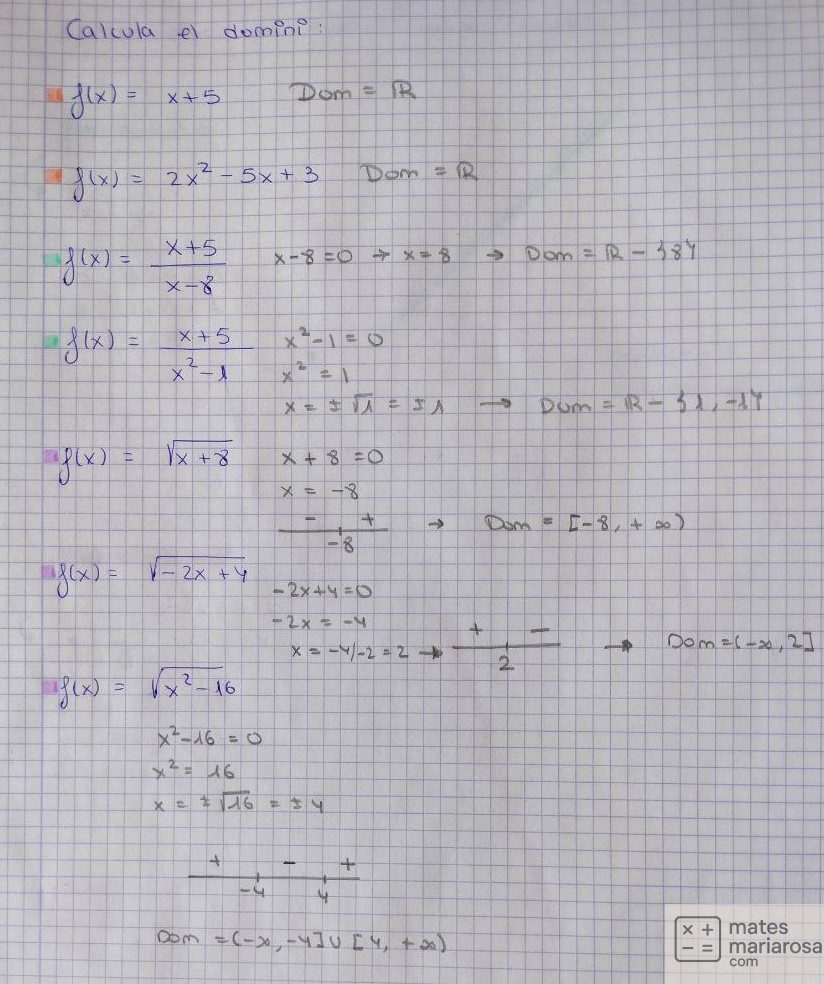 Calcula el domini:
f(x) = x+5 Dom = ℝ
f(x) = 2x² - 5x + 3 Dom = ℝ
f(x) = (x+5)/(x-8) x-8=0 → x=8 → Dom = ℝ - {8}
f(x) = (x+5)/(x²-1) x²-1=0
x² = 1
x = ±√1 = ±1 → Dom = ℝ - {1, -1}
f(x) = √(x+8) x+8=0
x = -8
- +
-8
→ Dom = [-8, +∞)
f(x) = √(-2x+4) -2x+4=0
-2x = -4
x = -4/-2 = 2 →
+ -
2
→ Dom=(-∞, 2]
f(x) = √(x²-16)
x²-16 = 0
x² = 16
x = ±√16 = ±4
+ - +
-4 4
Dom = (-∞, -4] ∪ [4, +∞)
× + mates
- = mariarosa
com